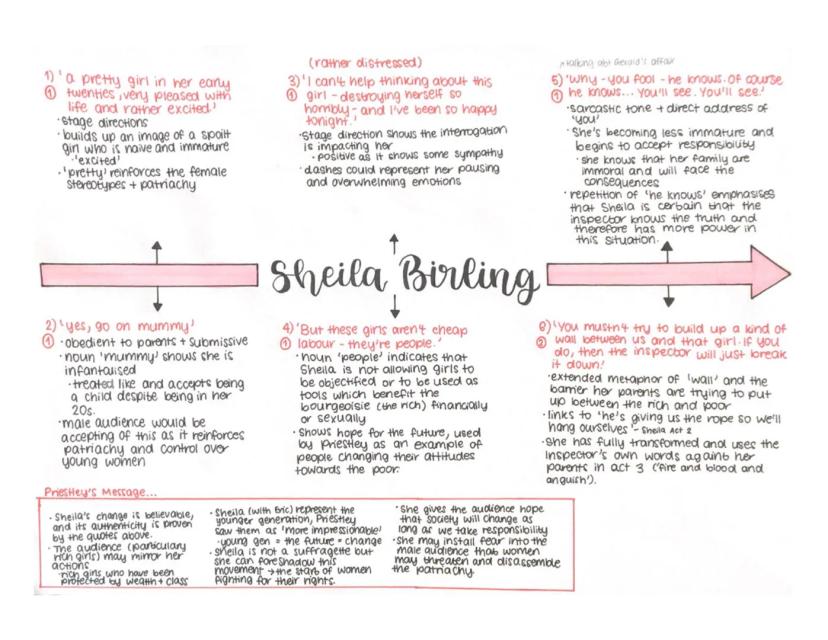 1) 'a pretty girl in her early
① twenties, very pleased with
life and rather excited.'
· stage directions
· builds up an image of a spoilt
girl who is naive and immature
· 'excited'
· 'pretty' reinforces the female
stereotypes + patriachy
(rather distressed)
3) 'I can't help thinking about this
① girl - destroying herself so
horribly - and I've been so happy
tonight.'
· stage direction shows the interrogation
is impacting her
· positive as it shows some sympathy
· dashes could represent her pausing
and overwhelming emotions
↗ talking abt Gerald's affair
5) 'Why - you fool - he knows. Of course
① he knows... You'll see. You'll see.'
· sarcastic tone + direct address of
'you'
· She's becoming less immature and
begins to accept responsibility
· she knows that her family are
immoral and will face the
consequences
· repetition of 'he knows' emphasises
that Sheila is certain that the
inspector knows the truth and
therefore has more power in
this situation.
Sheila Birling
2) 'yes, go on mummy'
① · obedient to parents + submissive
· noun 'mummy' shows she is
infantalised
· treated like and accepts being
a child despite being in her
20s.
· male audience would be
accepting of this as it reinforces
patriachy and control over
young women
4) 'But these girls aren't cheap
① labour - they're people.'
· noun 'people' indicates that
Sheila is not allowing girls to
be objectified or to be used as
tools which benefit the
bourgeoisie (the rich) financially
or sexually
· shows hope for the future, used
by Priestley as an example of
people changing their attitudes
towards the poor.
6) 'You mustn't try to build up a kind of
② wall between us and that girl. If you
do, then the inspector will just break
it down.'
· extended metaphor of 'wall' and the
barrier her parents are trying to put
up between the rich and poor
· links to 'he's giving us the rope so we'll
hang ourselves' - Sheila Act 2
· She has fully transformed and uses the
Inspector's own words against her
parents in act 3 ('fire and blood and
anguish').
Priestley's Message...
· Sheila's change is believable,
and its authenticity is proven
by the quotes above.
· The audience (particulary
rich girls) may mirror her
actions
· rich girls who have been
protected by wealth + class
· Sheila (with Eric) represent the
younger generation, Priestley
saw them as 'more impressionable'
· young gen = the future = change
· Sheila is not a suffragette but
she can foreshadow this
movement → the start of women
fighting for their rights.
· She gives the audience hope
that society will change as
long as we take responsibility
· she may install fear into the
male audience that women
may threaten and disassemble
the patriachy